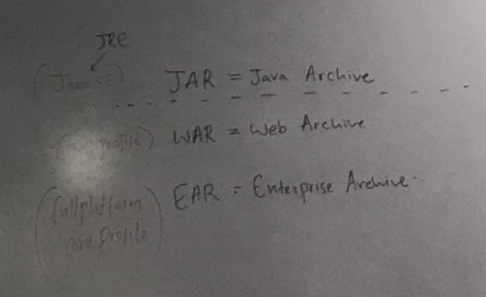 JRE
(Java SE) JAR = Java Archive
Profile) WAR = Web Archive
(fullplatform EAR = Enterprise Archive.
Profile)